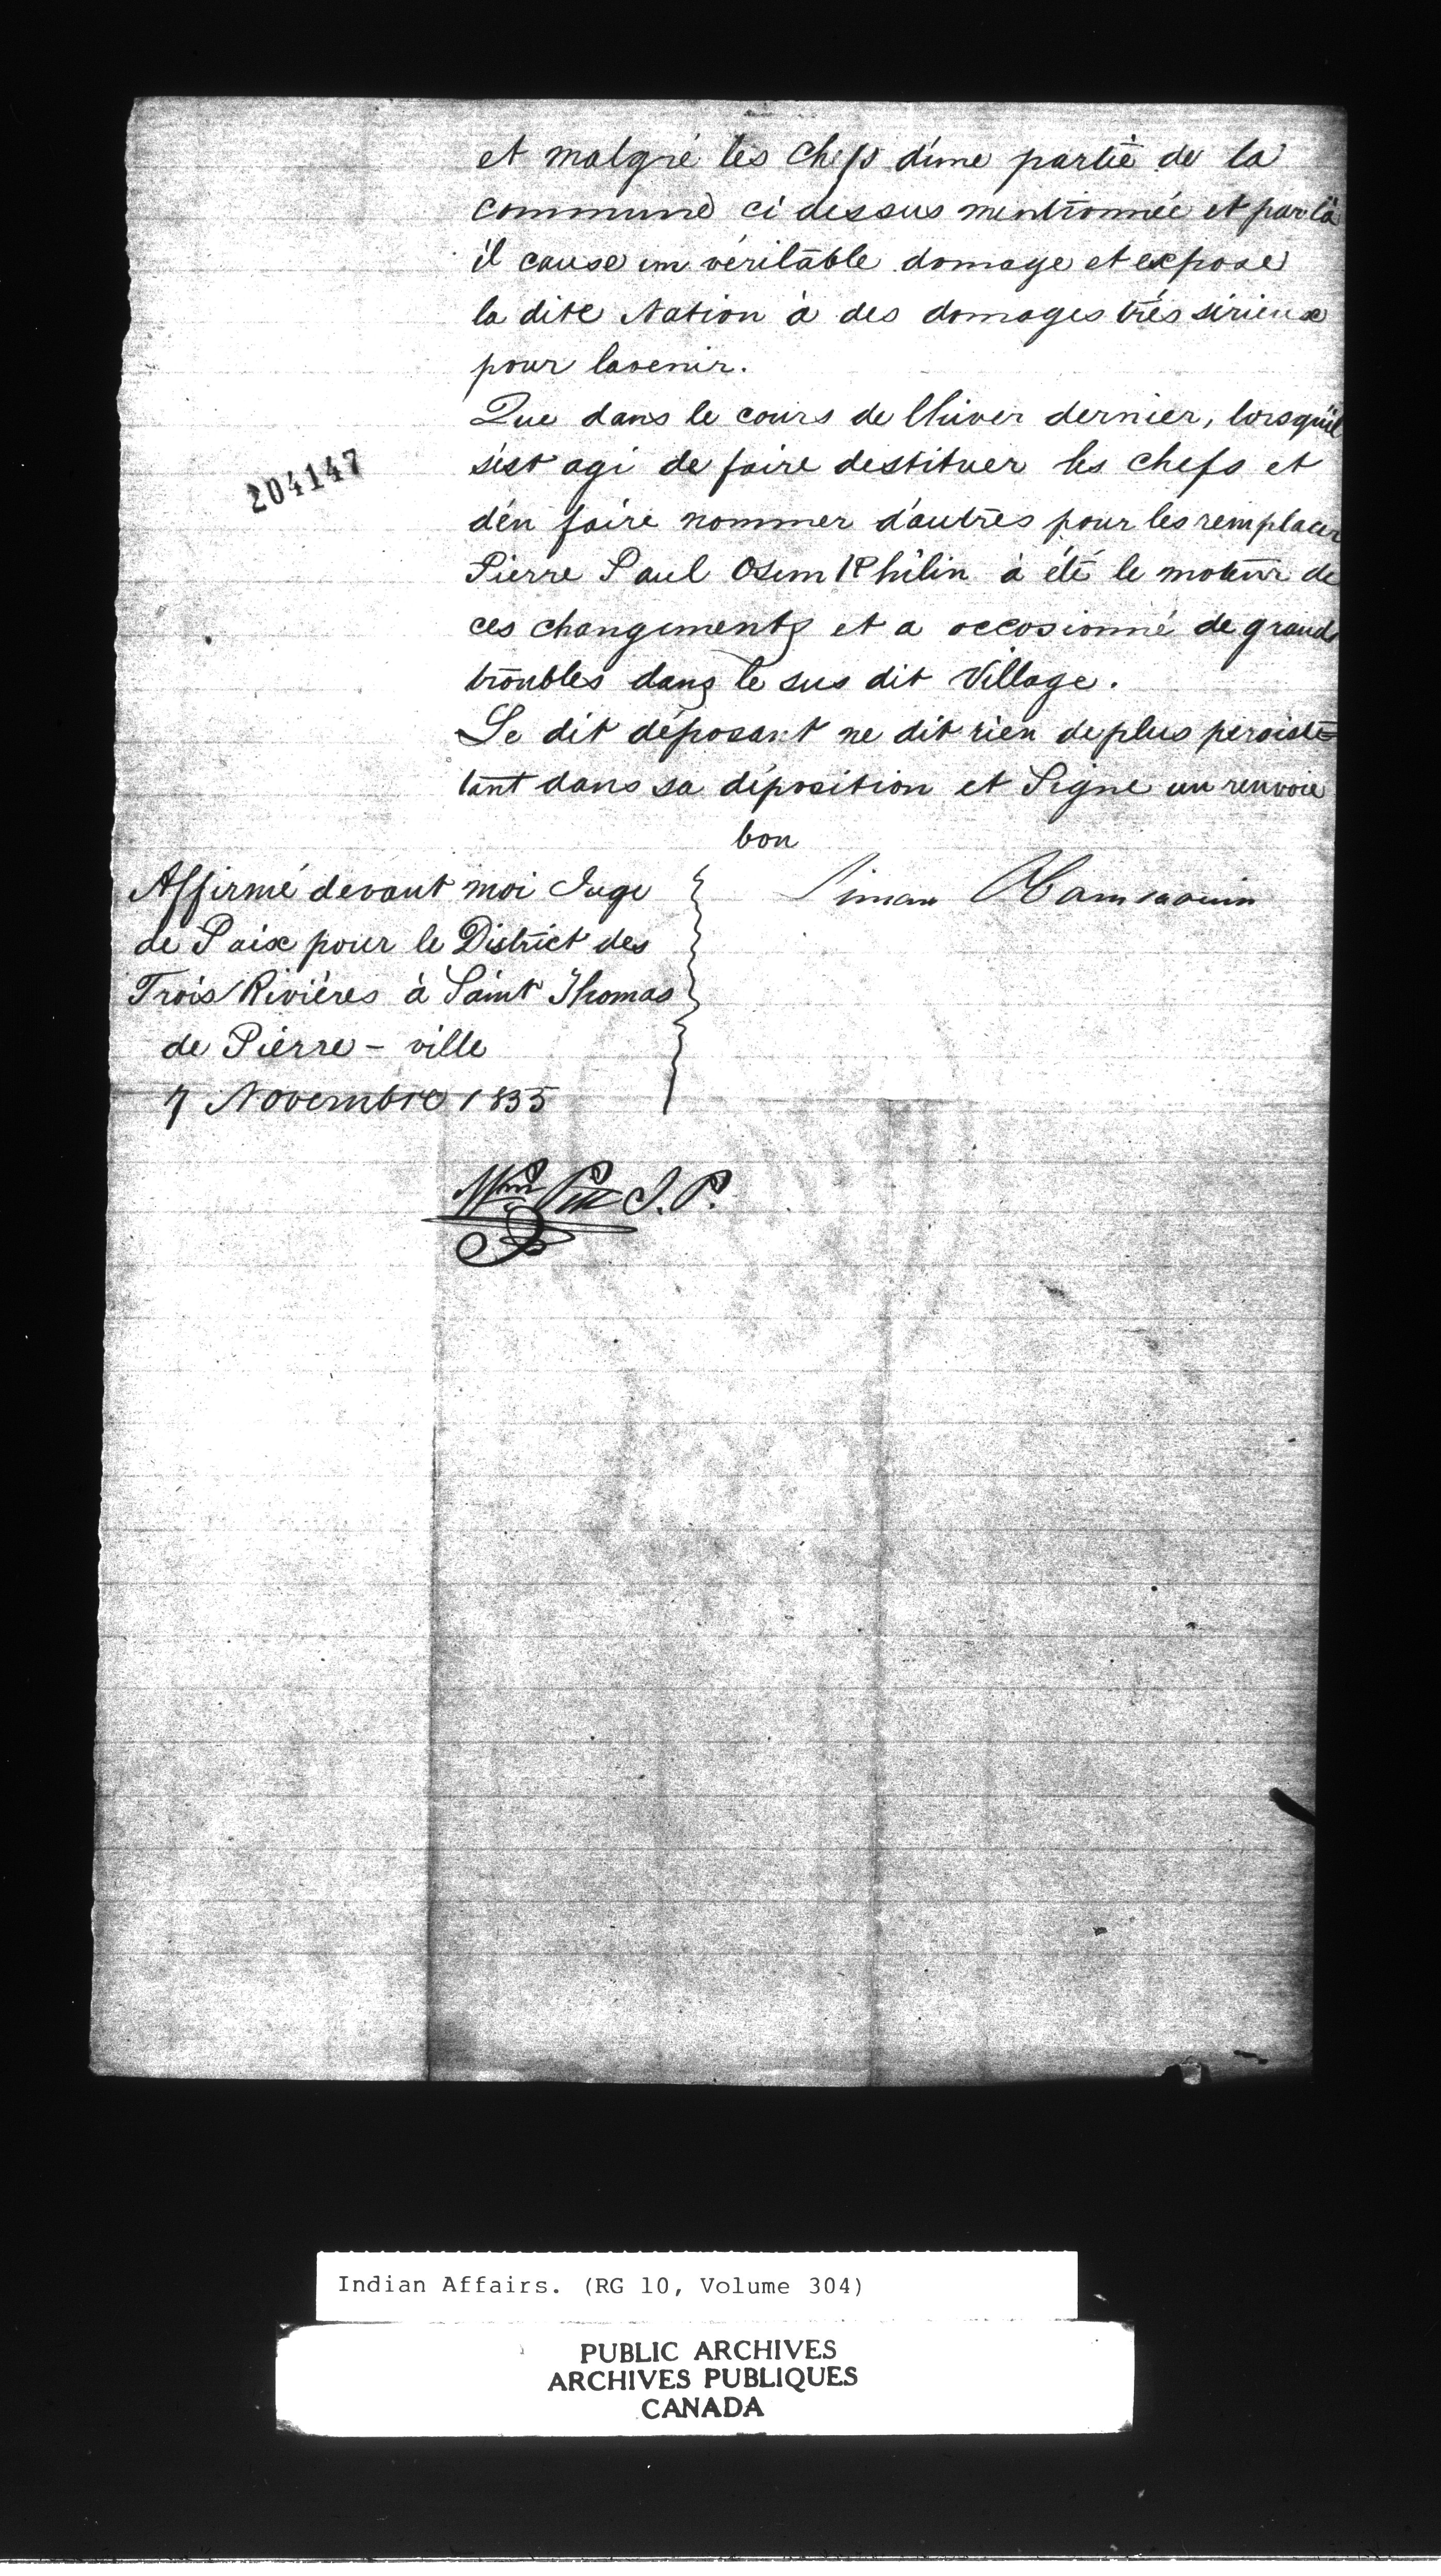 et malgré les chefs d'une partie de la
commune ci dessus mentionnée et par là
il cause un véritable domage et expose
la dite Nation à des domages très sérieux
pour lavenir.
Que dans le cours de lhiver dernier, lorsqu'il
s'est agi de faire destituer les chefs et
d'en faire nommer d'autres pour les remplacer
Pierre Paul Osun Khilin à été le moteur de
ces changements et a occasionné de grands
troubles dans le sus dit Village.
Le dit déposant ne dit rien de plus persist=
tant dans sa déposition et Signe un renvoie
bon
204147
Affirmé devant moi Juge
de Paix pour le District des
Trois Rivières à Saint Thomas
de Pierre - ville
7 Novembre 1855
Simon
Wm Pitt J. P.
Indian Affairs. (RG 10, Volume 304)
PUBLIC ARCHIVES
ARCHIVES PUBLIQUES
CANADA